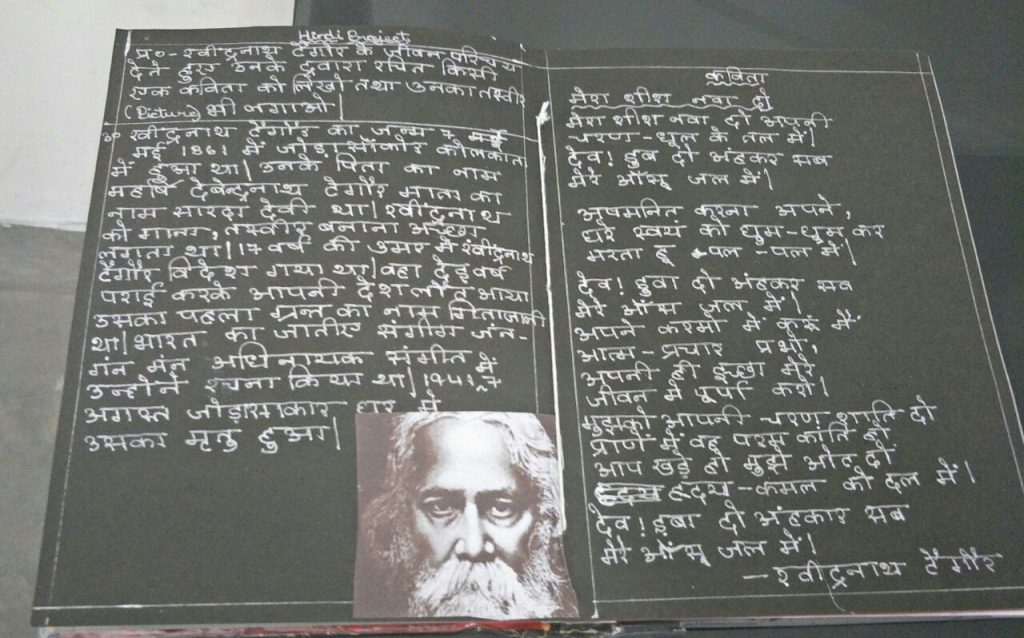 Hindi Project
प्र०- रवीन्द्रनाथ टैगौर के जीवन परिचय
देते हुए उनके द्रवारा रचित किसी
एक कविता को लिखो तथा उनका तस्वीर
(Picture) भी लगाओ।
उ० रवीन्द्रनाथ टैगौर का जन्म 7
मई 1861 में जोड़ासाँकोर कोलकाता
में हुआ था। उनके पिता का नाम
महर्षि देबेन्द्रनाथ टैगौर माता का
नाम सारदा देवी था। रवीन्द्रनाथ
को गाना, तस्वीर बनाना अच्छा
लगता था। 17 वर्ष की उमर में रवीन्द्रनाथ
टैगौर विदेश गया था। वहा देड़ वर्ष
पराई करके आपनी देश लौत आया
उसका पहला ग्रन्त का नाम गिताजाली
था। भारत का जातीए संगीग जंन-
गंन मंन अधिनायक संगीत में
उन्होने रचना किया था। 1941, 7
अगास्त जोड़ासाकार घार में
उसका मृतु हुआ।
कविता
मेरा शीश नवा दो
मेरा शीश नवा दो अपनी
चरण-धूल के तल में।
देव! डुब दो अंहकर सब
मेरे आँसू जल में।
अपमनित करना अपने,
घेरे स्वयं को घुम-घुम कर
मरता हू पल-पल में।
देव! डुवा दो अंहकार सब
मेरे आँस जल में।
अपने करमो में करूं मैं
आत्म-प्रचार प्रभो,
अपनी ही इच्छा मेरे
जीवन में पूर्ण करो।
मुझको आपनी चरण शाति दो
प्राणें में वह परम काति हो
आप खड़े हो मुझे ओट दो
हृदय-कमल को दल में।
देव! डुबा दो अंहकार सब
मेरे आँसू जल में।
- रवीन्द्रनाथ टैगौर